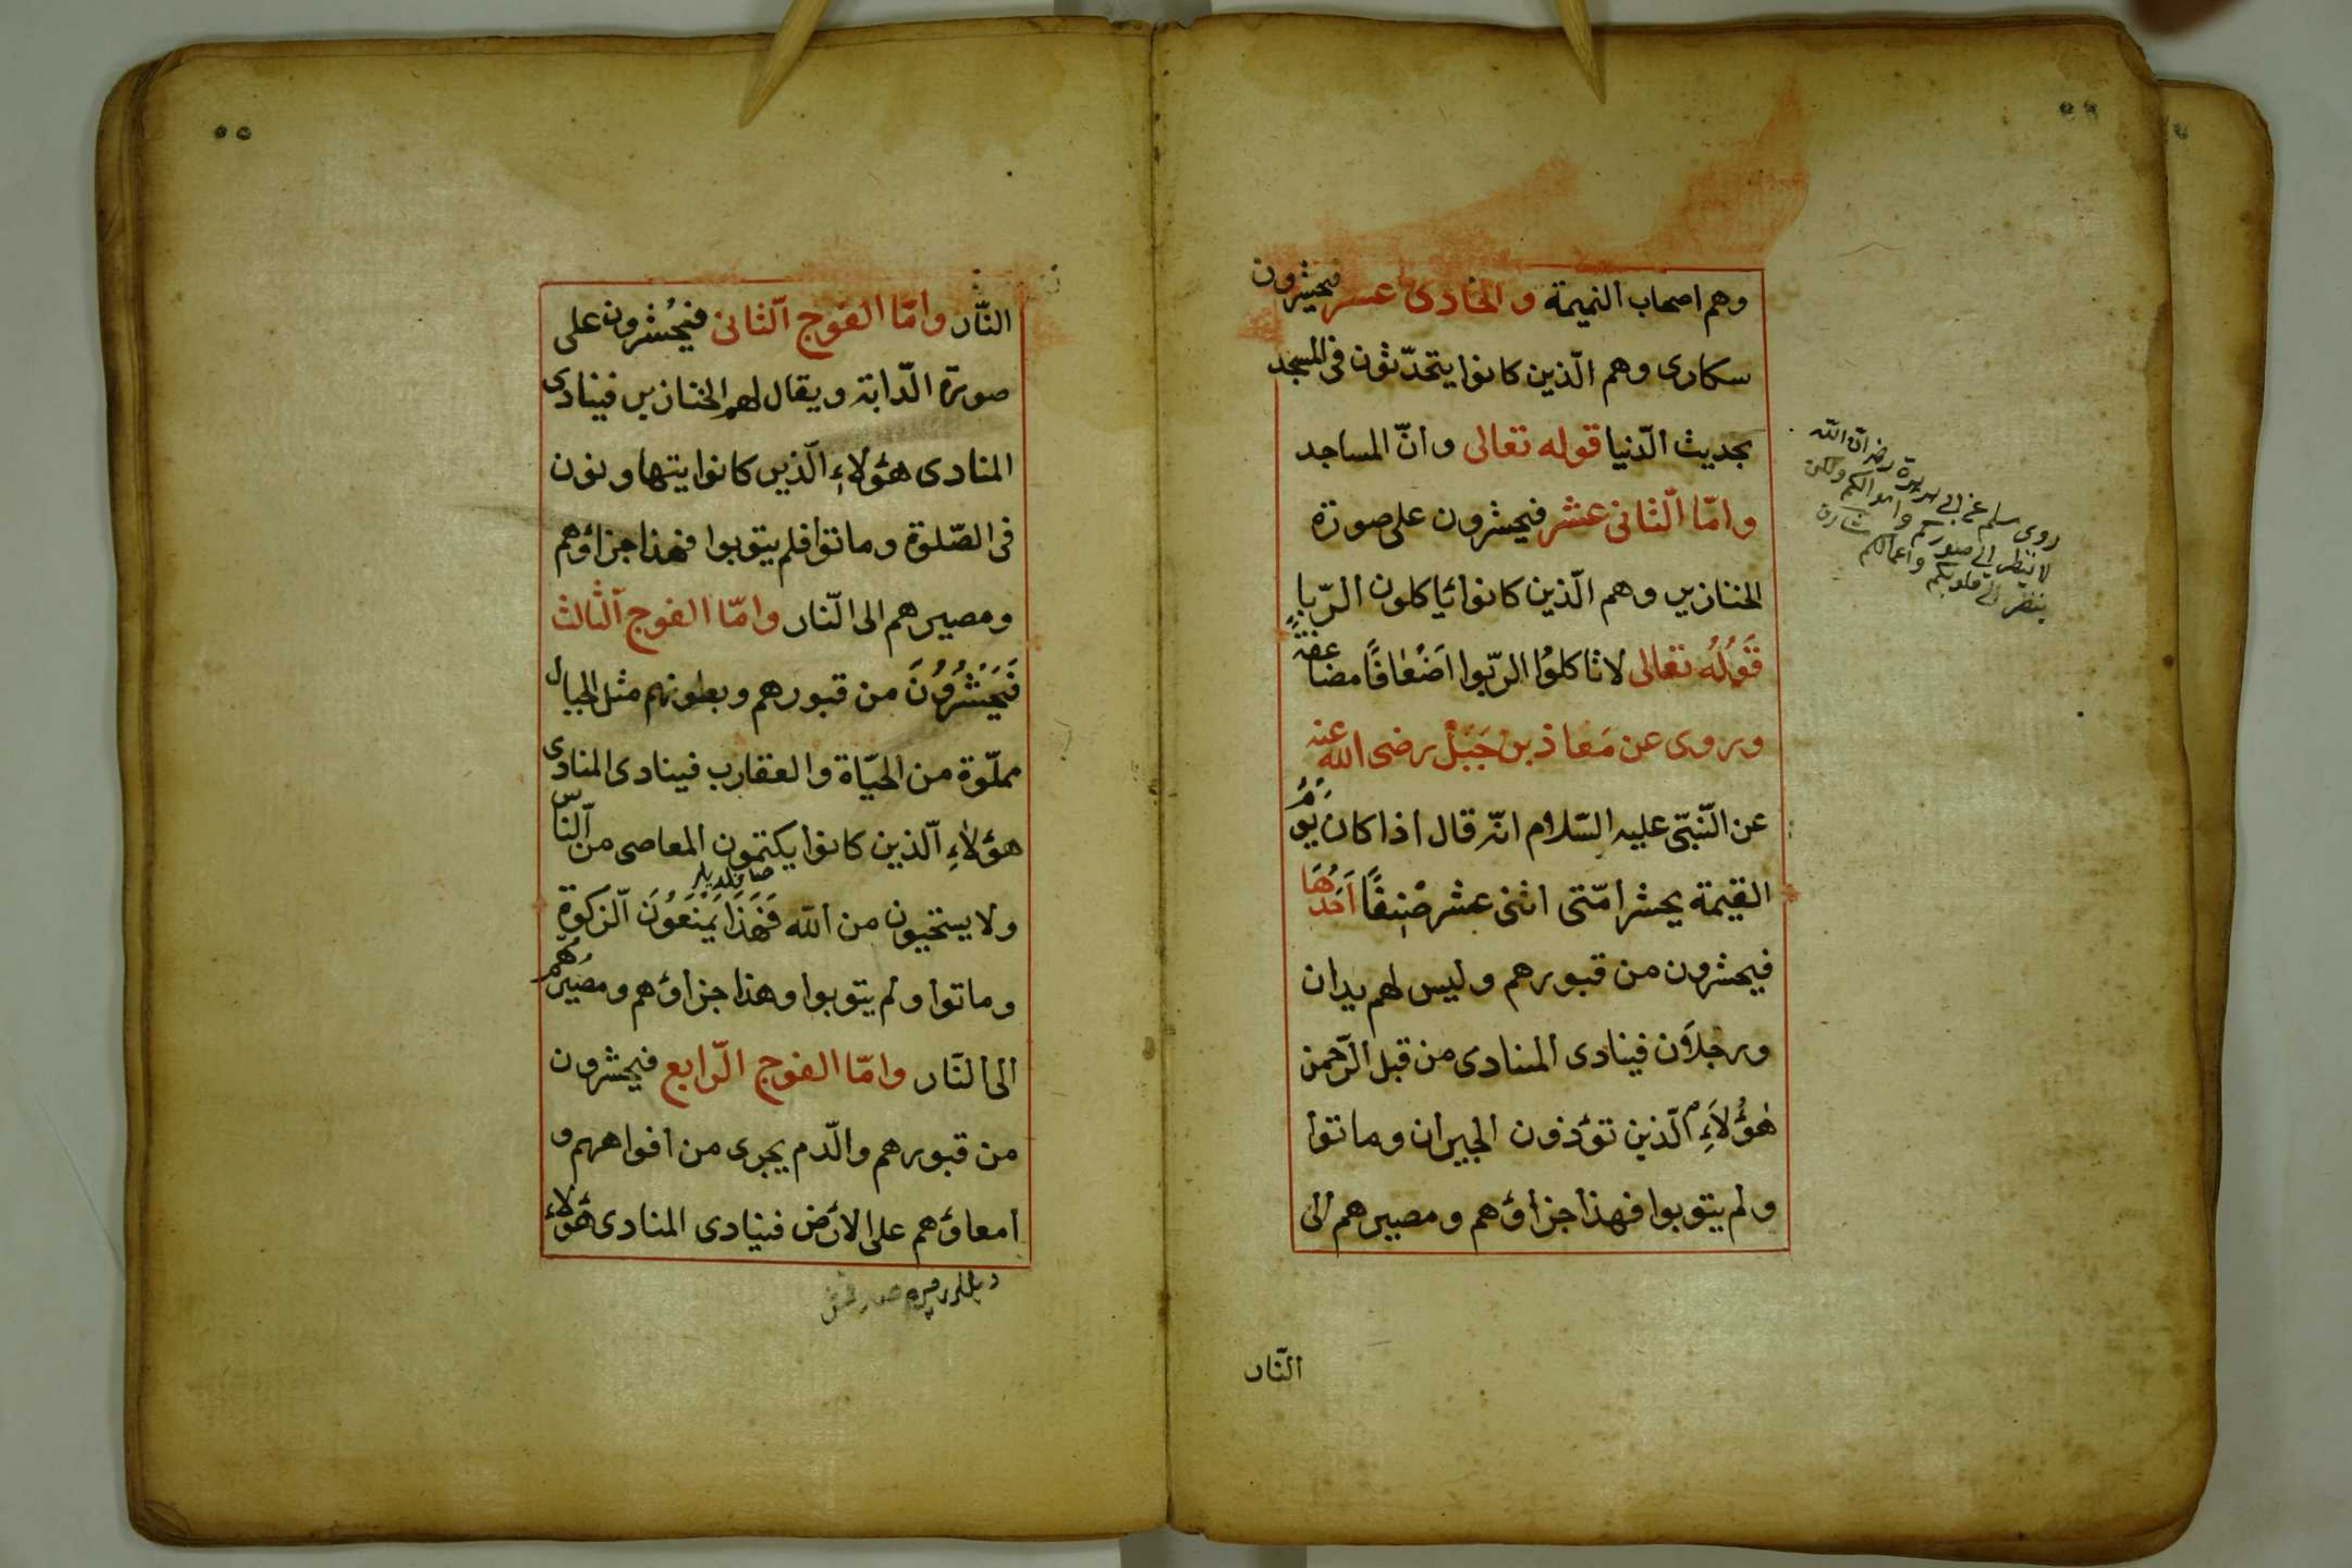 وهم اصحاب النميمة والحادى عشر فيحشرون
سكارى وهم الّذين كانوا يتحدّثون فى المسجد
بحديث الدّنيا قوله تعالى وانّ المساجد
وامّا الثّانى عشر فيحشرون على صورة
الخنازير وهم الّذين كانوا ئاكلون الرّبا
قَوْلُهُ تعالى لا تاكلوُا الرّبوا اَضْعٰافًا مضاعفة
وروى عن مَعاذ بن جَبَلْ رضى الله عنه
عن النّبىّ عليه السّلام انّه قال اذا كان يَوْمُ
القيمة يحشر امّتى اثنى عشر صْنِفًا اَحَدُهَا
فيحشرون من قبورهم وليس لهم يدان
ورجلاَن فينادى المنادى من قبل الرّحمن
هٰؤُلاَءِ الّذين تؤذون الجيران وماتوا
ولم يتوبوا فهذا جزاؤهم ومصيرهم الى
النّار
روى مسلم عن ابى هريرة رضى انّ الله
لا ينظر الى صوركم واموالكم ولكن
ينظر الى قلوبكم واعمالكم
٥٥
النّار وامّا الفوج الثّانى فيحُشرون على
صورة الدّابة ويقال لهم الخنازير فينادى
المنادى هؤلاءِ الّذين كانوا يتهاونون
فى الصّلوة وماتوا فلم يتوبوا فهذا جزاؤهم
ومصيرهم الى النّار وامّا الفوج الثّالث
فَيَحْشُرُوُنَ من قبورهم وبطونهم مثل الجبال
مملّوة من الحيّاة والعقارب فينادى المنادى
هؤلاءِ الّذين كانوا يكتمون المعاصى من النّاس
ولا يستحيون من الله فَهَذَا يَمْنَعُوُنَ الّزكوة
وماتوا ولم يتوبوا وهذا جزاؤهم ومصيرُهُم
الى النّار وامّا الفوج الرّابع فيحشرون
من قبورهم والدّم يجرى من افواههم و
امعاؤهم على الارض فينادى المنادى هؤلاء